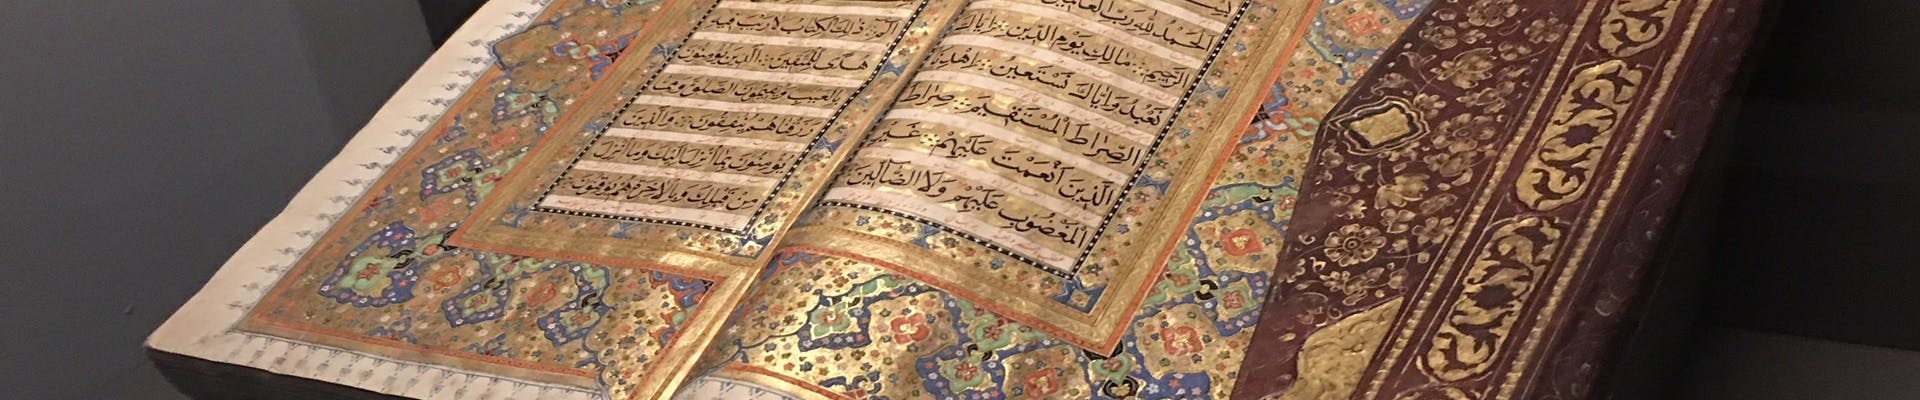 اَلْحَمْدُ لِلّٰهِ رَبِّ الْعَالَمِينَ
الرَّحِيمِ مَالِكِ يَوْمِ الدِّينِ اِيَّاكَ
نَعْبُدُ وَاِيَّاكَ نَسْتَعِينُ اِهْدِنَا
الصِّرَاطَ الْمُسْتَقِيمَ صِرَاطَ
الَّذِينَ اَنْعَمْتَ عَلَيْهِمْ غَيْرِ
الْمَغْضُوبِ عَلَيْهِمْ وَلَا الضَّالِّينَ
الٓمٓ ذٰلِكَ الْكِتَابُ لَا رَيْبَ فِيهِ
هُدًى لِلْمُتَّقِينَ الَّذِينَ يُؤْمِنُونَ
بِالْغَيْبِ وَيُقِيمُونَ الصَّلٰوةَ وَمِمَّا
رَزَقْنَاهُمْ يُنْفِقُونَ وَالَّذِينَ
يُؤْمِنُونَ بِمَا اُنْزِلَ اِلَيْكَ وَمَا اُنْزِلَ
مِنْ قَبْلِكَ وَبِالْاٰخِرَةِ هُمْ يُوقِنُونَ